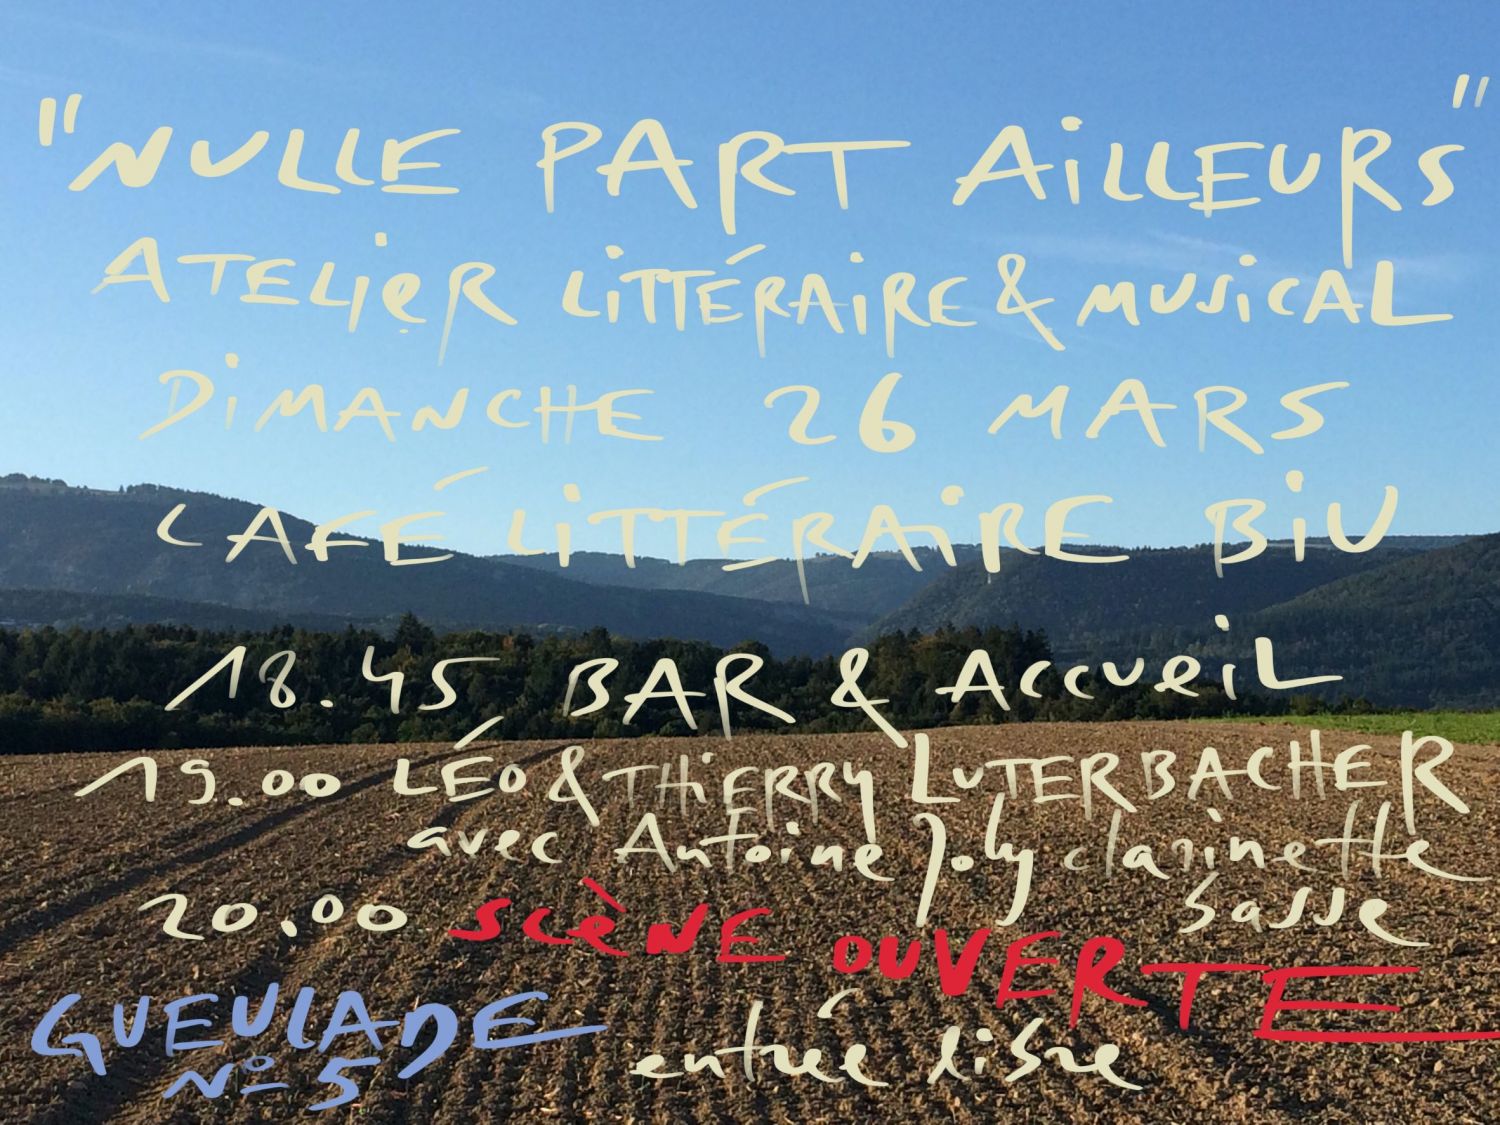 "NULLE PART AiLLEURS"
ATELiER LiTTÉRAiRE & MUSiCAL
DiMANCHE 26 MARS
CAFÉ LiTTÉRAiRE BiU
18.45 BAR & ACCUEiL
19.00 LÉO & THiERRY LUTERBACHER
avec Antoine Joly clarinette
basse
20.00 SCÈNE OUVERTE
GUEULADE
Nº 5
entrée libre